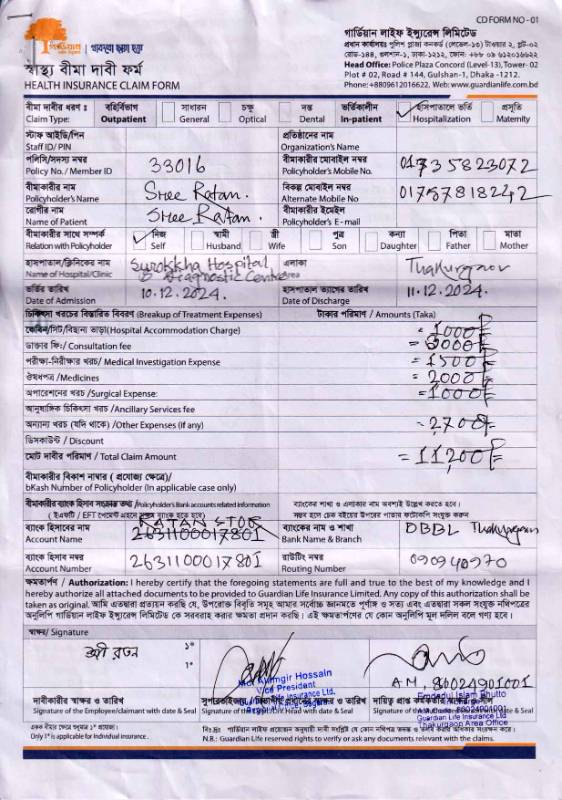 CD FORM NO - 01
গার্ডিয়ান লাইফ ইন্স্যুরেন্স লিমিটেড
প্রধান কার্যালয়: পুলিশ প্লাজা কনকর্ড (লেভেল-১৩) টাওয়ার ২, প্লট-০২
রোড-১৪৪, গুলশান-১, ঢাকা-১২১২, ফোন: +৮৮ ০৯ ৬১২০১৬৬২২
Head Office: Police Plaza Concord (Level-13), Tower- 02
Plot # 02, Road # 144, Gulshan-1, Dhaka -1212.
Phone: +8809612016622, Web: www.guardianlife.com.bd
গার্ডিয়ান
স্বাস্থ্য বীমা দাবী ফর্ম
HEALTH INSURANCE CLAIM FORM
বীমা দাবীর ধরণ : বহির্বিভাগ সাধারন চক্ষু দন্ত ভর্তিকালীন হাসপাতালে ভর্তি প্রসূতি
Claim Type: Outpatient General Optical Dental In-patient Hospitalization Maternity
স্টাফ আইডি/পিন প্রতিষ্ঠানের নাম
Staff ID/ PIN Organization's Name
পলিসি/সদস্য নম্বর 33016 বীমাকারীর মোবাইল নম্বর 01735823072
Policy No./ Member ID Policyholder's Mobile No.
বীমাকারীর নাম Sree Ratan. বিকল্প মোবাইল নম্বর 01757818242
Policyholder's Name Alternate Mobile No.
রোগীর নাম Sree Ratan. বীমাকারীর ইমেইল
Name of Patient Policyholder's E-mail
বীমাকারীর সাথে সম্পর্ক নিজ স্বামী স্ত্রী পুত্র কন্যা পিতা মাতা
Relation with Policyholder Self Husband Wife Son Daughter Father Mother
হাসপাতাল/ক্লিনিকের নাম Surokkha Hospital এলাকা Thakurgaon
Name of Hospital/Clinic Diagnostic Centre Area
ভর্তির তারিখ 10.12.2024. হাসপাতাল ত্যাগের তারিখ 11.12.2024.
Date of Admission Date of Discharge
চিকিৎসা খরচের বিস্তারিত বিবরণ (Breakup of Treatment Expenses) টাকার পরিমাণ / Amounts (Taka)
কেবিন/সিট/বিছানা ভাড়া(Hospital Accommodation Charge) = 1000/-
ডাক্তার ফি:/ Consultation fee
পরীক্ষা-নিরীক্ষার খরচ/ Medical Investigation Expense = 1500/-
ঔষধপত্র /Medicines = 2000/-
অপারেশনের খরচ /Surgical Expense: = 1000/-
আনুষাঙ্গিক চিকিৎসা খরচ /Ancillary Services fee
অন্যান্য খরচ (যদি থাকে) /Other Expenses (if any) = 2700/-
ডিসকাউন্ট / Discount
মোট দাবীর পরিমাণ / Total Claim Amount = 11,200/-
বীমাকারীর বিকাশ নাম্বার ( প্রযোজ্য ক্ষেত্রে)/
bKash Number of Policyholder (In applicable case only)
বীমাকারীর ব্যাংক হিসাব সংক্রান্ত তথ্য /Policyholder's Bank accounts related information ব্যাংকের শাখা ও এলাকার নাম অবশ্যই উল্লেখ করতে হবে।
RATAN STOR
ব্যাংক হিসাবের নাম 2631100017801 ব্যাংকের নাম ও শাখা DBBL Thakurgaon
Account Name Bank Name & Branch
ব্যাংক হিসাব নম্বর 2631100017801 রাউটিং নম্বর 090940970
Account Number Routing Number
ক্ষমতার্পণ / Authorization: I hereby certify that the foregoing statements are full and true to the best of my knowledge and I
hereby authorize all attached documents to be provided to Guardian Life Insurance Limited. Any copy of this authorization shall be
taken as original. আমি এতদ্বারা প্রত্যয়ন করছি যে, উপরোক্ত বিবৃতি সমূহ আমার সর্বোচ্চ জ্ঞানমতে পূর্ণাঙ্গ ও সত্য এবং এতদ্বারা সকল সংযুক্ত নথিপত্রের
অনুলিপি গার্ডিয়ান লাইফ ইন্স্যুরেন্স লিমিটেড কে সরবরাহ করার ক্ষমতা প্রদান করছি। এই ক্ষমতার্পণের যে কোন অনুলিপি মূল দলিল বলে গণ্য হবে।
স্বাক্ষর/ Signature
শ্রী রতন
Alamgir Hossain
Vice President
A M, 80024901001
Emdadul Islam Bhutto
Guardian Life Insurance Ltd
Thakurgaon Area Office
দাবীকারীর স্বাক্ষর ও তারিখ
Signature of the Employee/claimant with date & Seal
একক বীমার ক্ষেত্রে শুধুমাত্র ১* প্রযোজ্য।
Only 1* is applicable for Individual insurance.
N.B.: Guardian Life reserved rights to verify or ask any documents relevant with the claims.